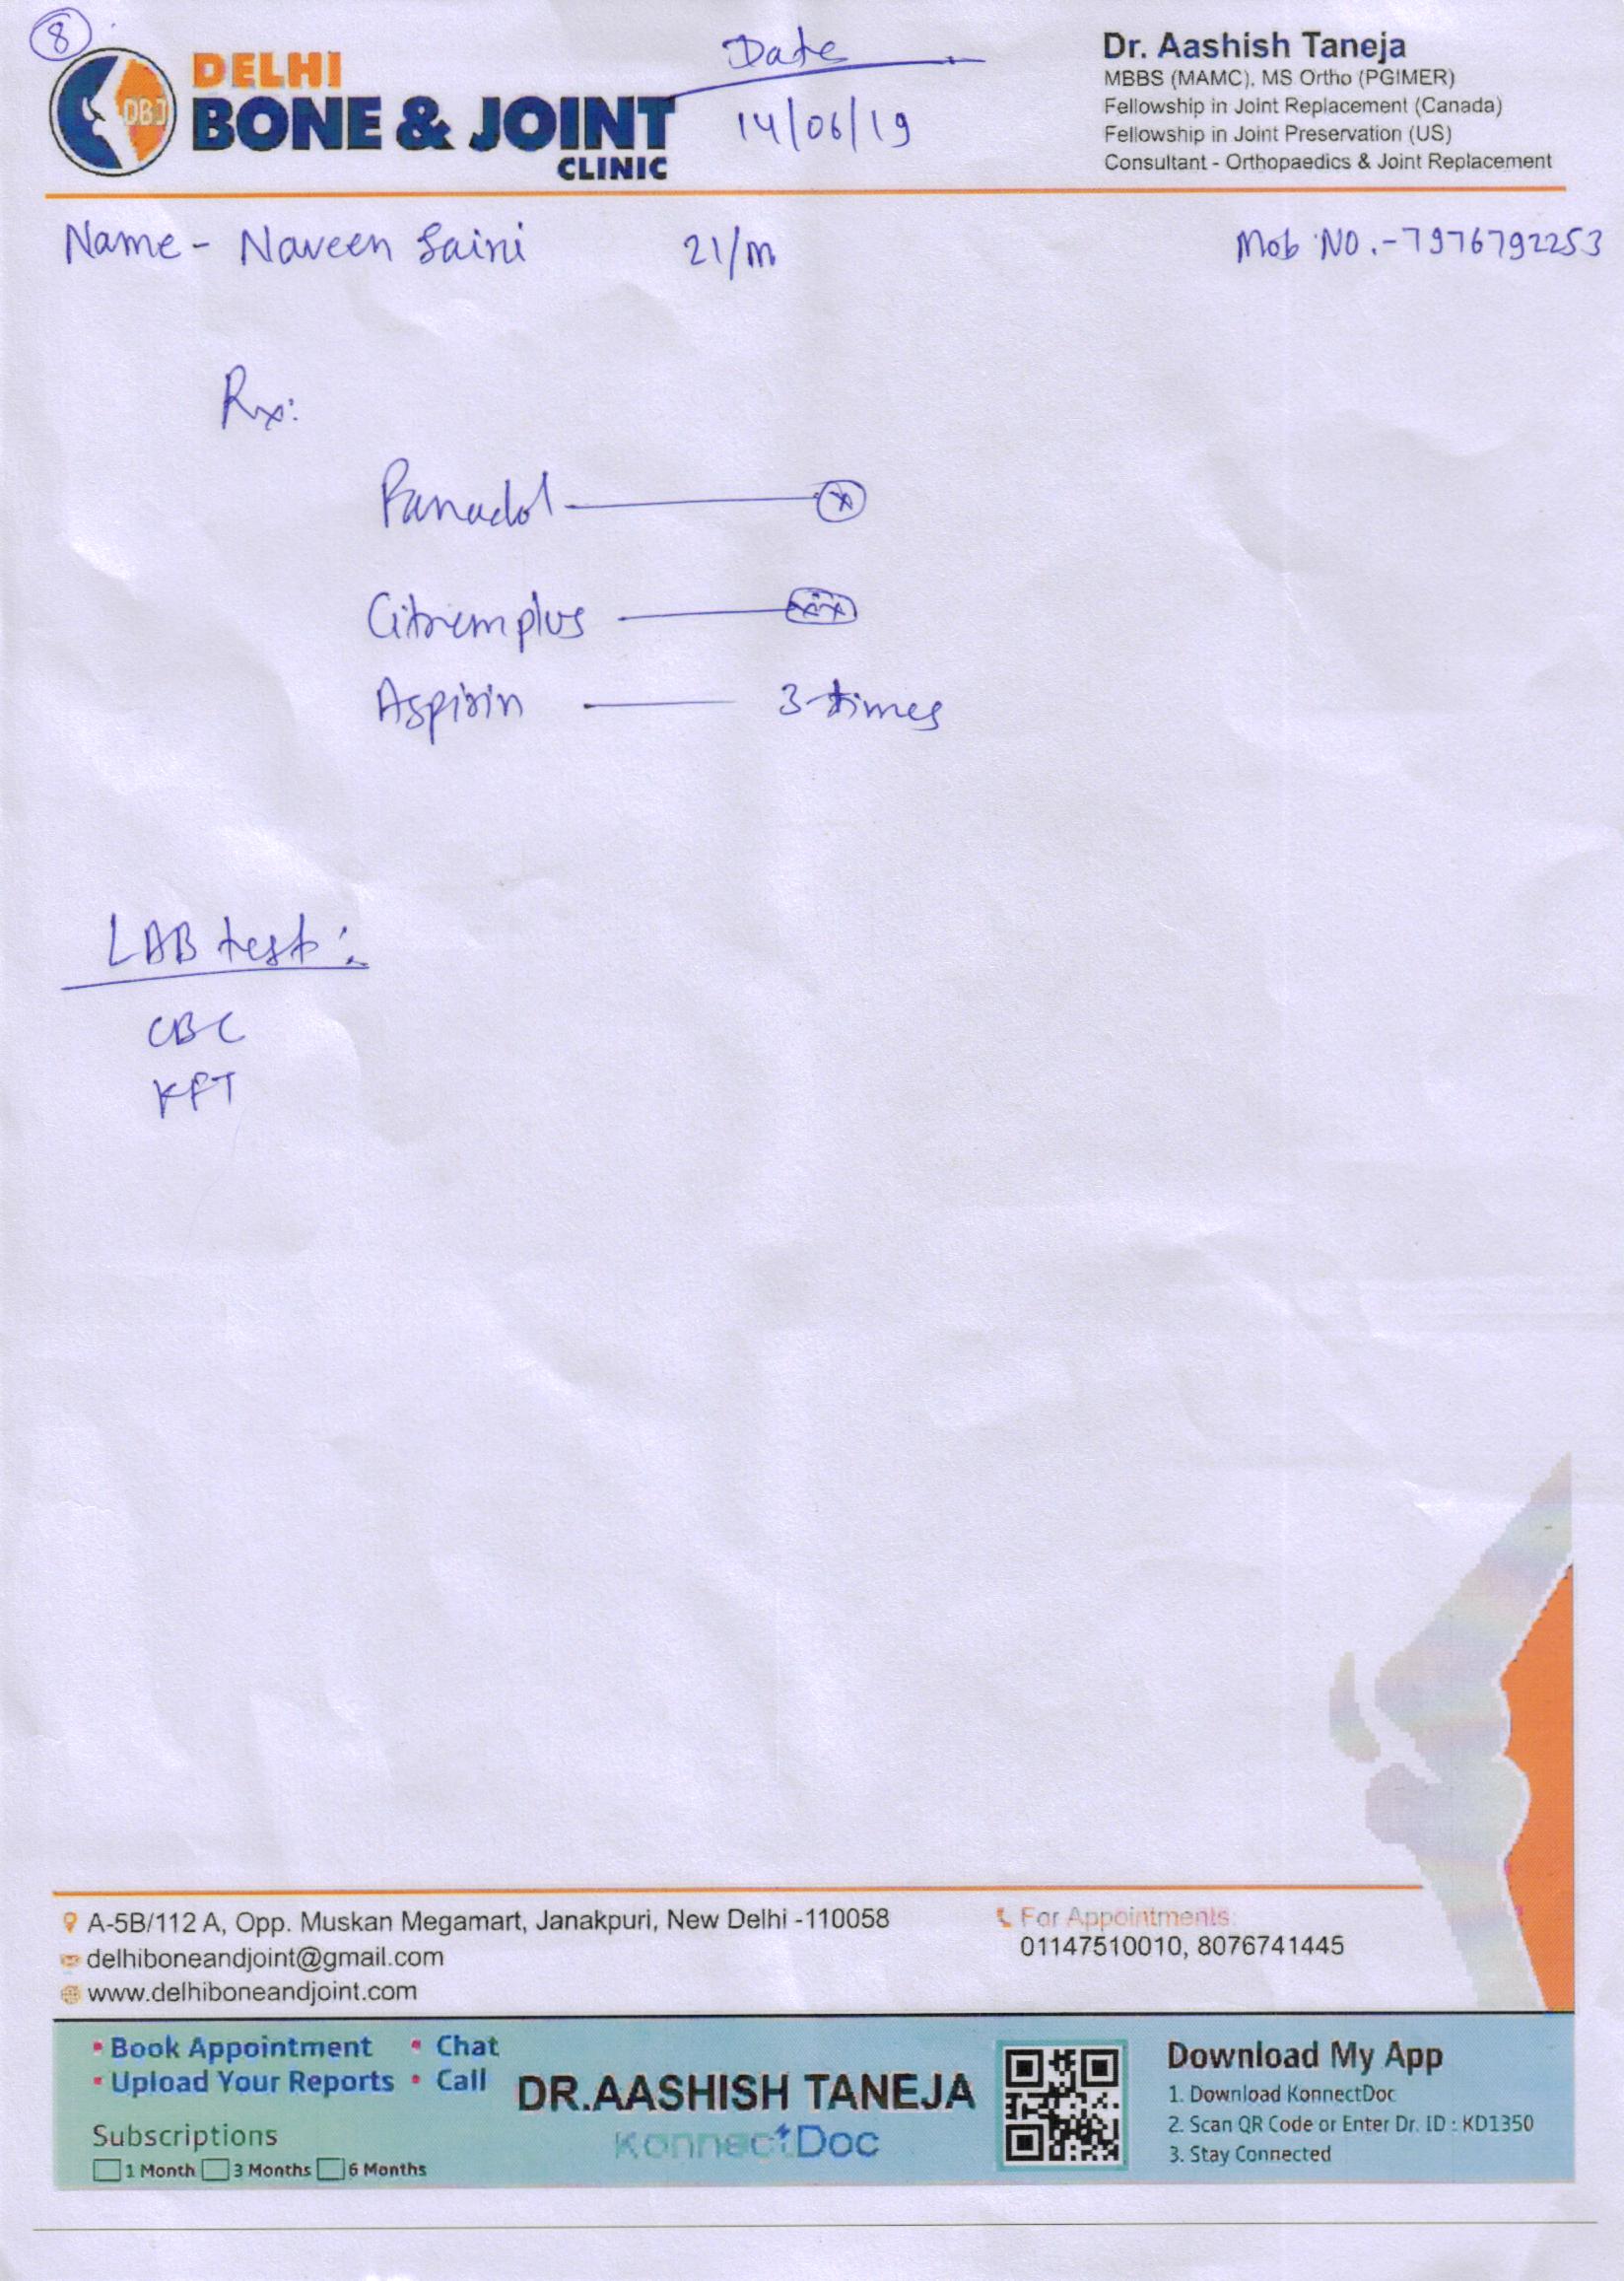 8
DELHI
BONE & JOINT
CLINIC
DBJ
Date
14/06/19
Dr. Aashish Taneja
MBBS (MAMC), MS Ortho (PGIMER)
Fellowship in Joint Replacement (Canada)
Fellowship in Joint Preservation (US)
Consultant - Orthopaedics & Joint Replacement
Name - Naveen Saini 21/m Mob No. - 7976792253
Rx:
Panadol
Citrem plus
Aspirin 3 times
LAB test:
CBC
KFT
A-5B/112 A, Opp. Muskan Megamart, Janakpuri, New Delhi -110058
delhiboneandjoint@gmail.com
www.delhiboneandjoint.com
For Appointments:
01147510010, 8076741445
• Book Appointment • Chat
• Upload Your Reports • Call
Subscriptions
1 Month 3 Months 6 Months
DR.AASHISH TANEJA
KonnectDoc
Download My App
1. Download KonnectDoc
2. Scan QR Code or Enter Dr. ID : KD1350
3. Stay Connected